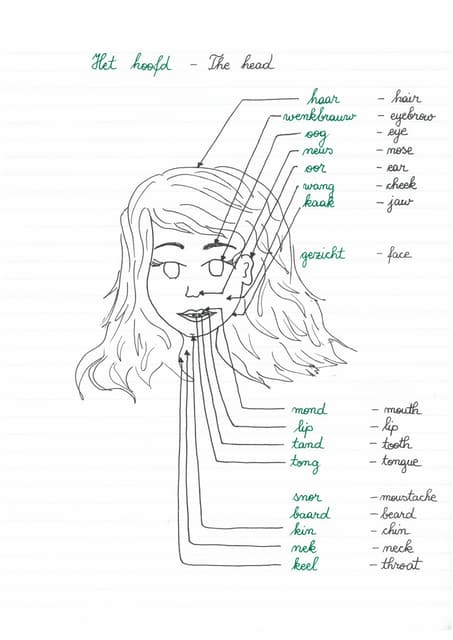 Het hoofd - The head
haar - hair
wenkbrauw - eyebrow
oog - eye
neus - nose
oor - ear
wang - cheek
kaak - jaw
gezicht - face
mond - mouth
lip - lip
tand - tooth
tong - tongue
snor - moustache
baard - beard
kin - chin
nek - neck
keel - throat